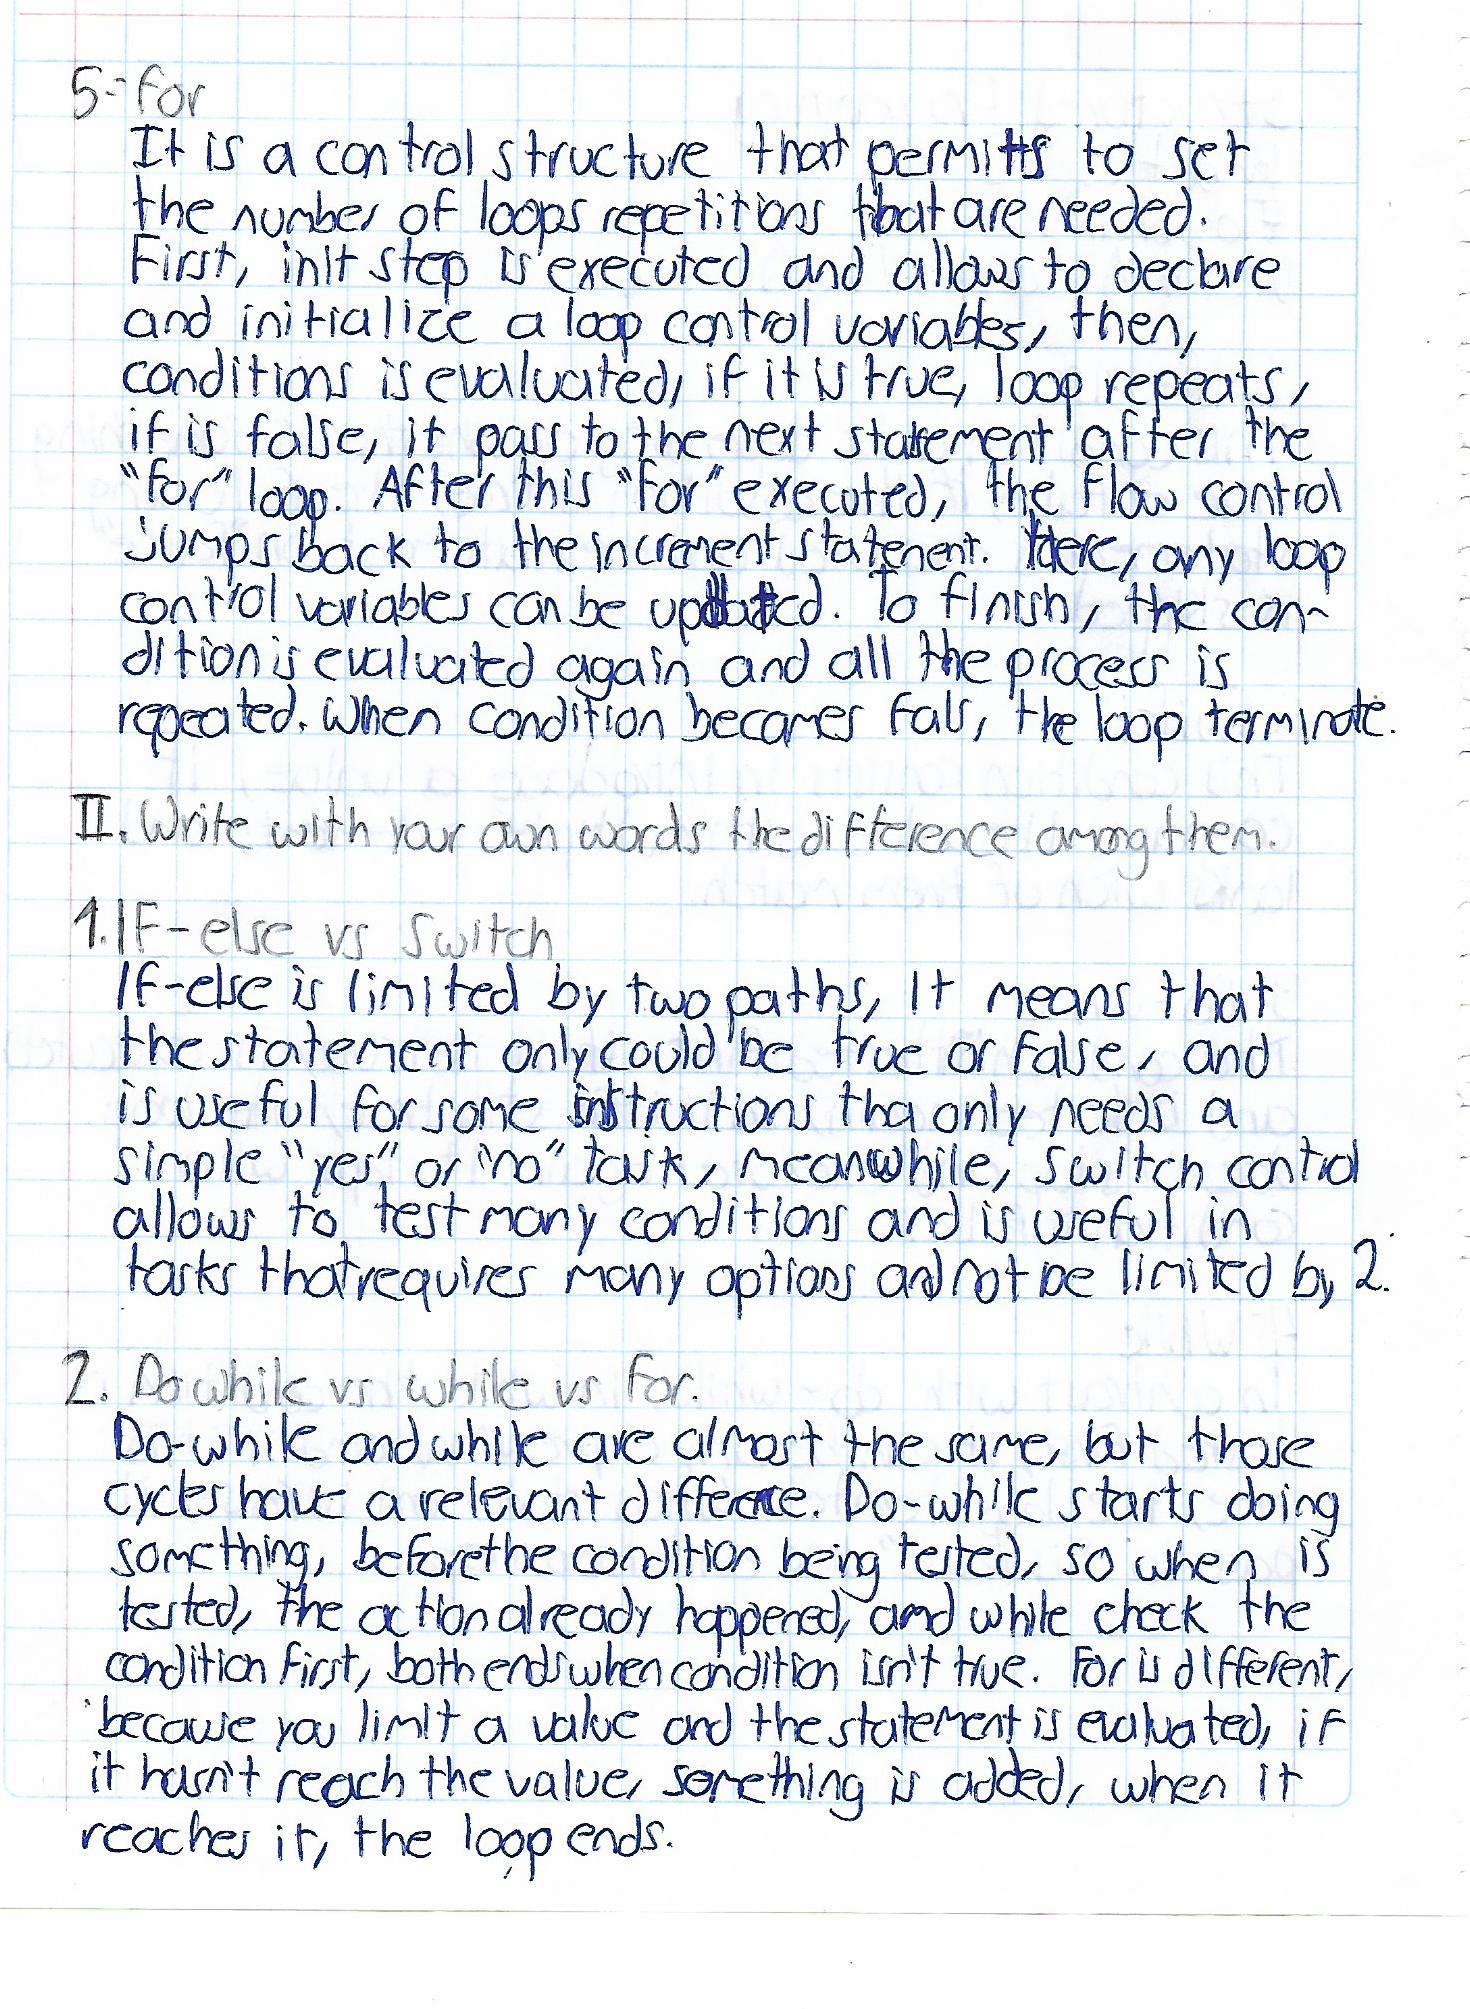 5-for
It is a control structure that permitts to set
the number of loops repetitions that are needed.
First, init step is executed and allows to declare
and initialize a loop control variables, then,
conditions is evaluated, if it is true, loop repeats,
if is false, it pass to the next statement after the
"for" loop. After this "for" executed, the flow control
jumps back to the increment statement. Here, any loop
control variables can be updated. To finish, the con-
dition is evaluated again and all the process is
repeated. When condition becames fals, the loop terminate.
II. Write with your own words the difference among them.
1. IF-else vs Switch
IF-else is limited by two paths, It means that
the statement only could be true or false, and
is useful for some instructions tha only needs a
simple "yes" or "no" task, meanwhile, switch control
allows to test many conditions and is useful in
tasks that requires many options and not be limited by 2.
2. Do while vs while vs for.
Do-while and while are almost the same, but those
cycles have a relevant difference. Do-while starts doing
something, before the condition being tested, so when is
tested, the action already happened, and while check the
condition first, both ends when condition isn't true. For is different,
because you limit a value and the statement is evaluated, if
it hasn't reach the value, something is added, when it
reaches it, the loop ends.